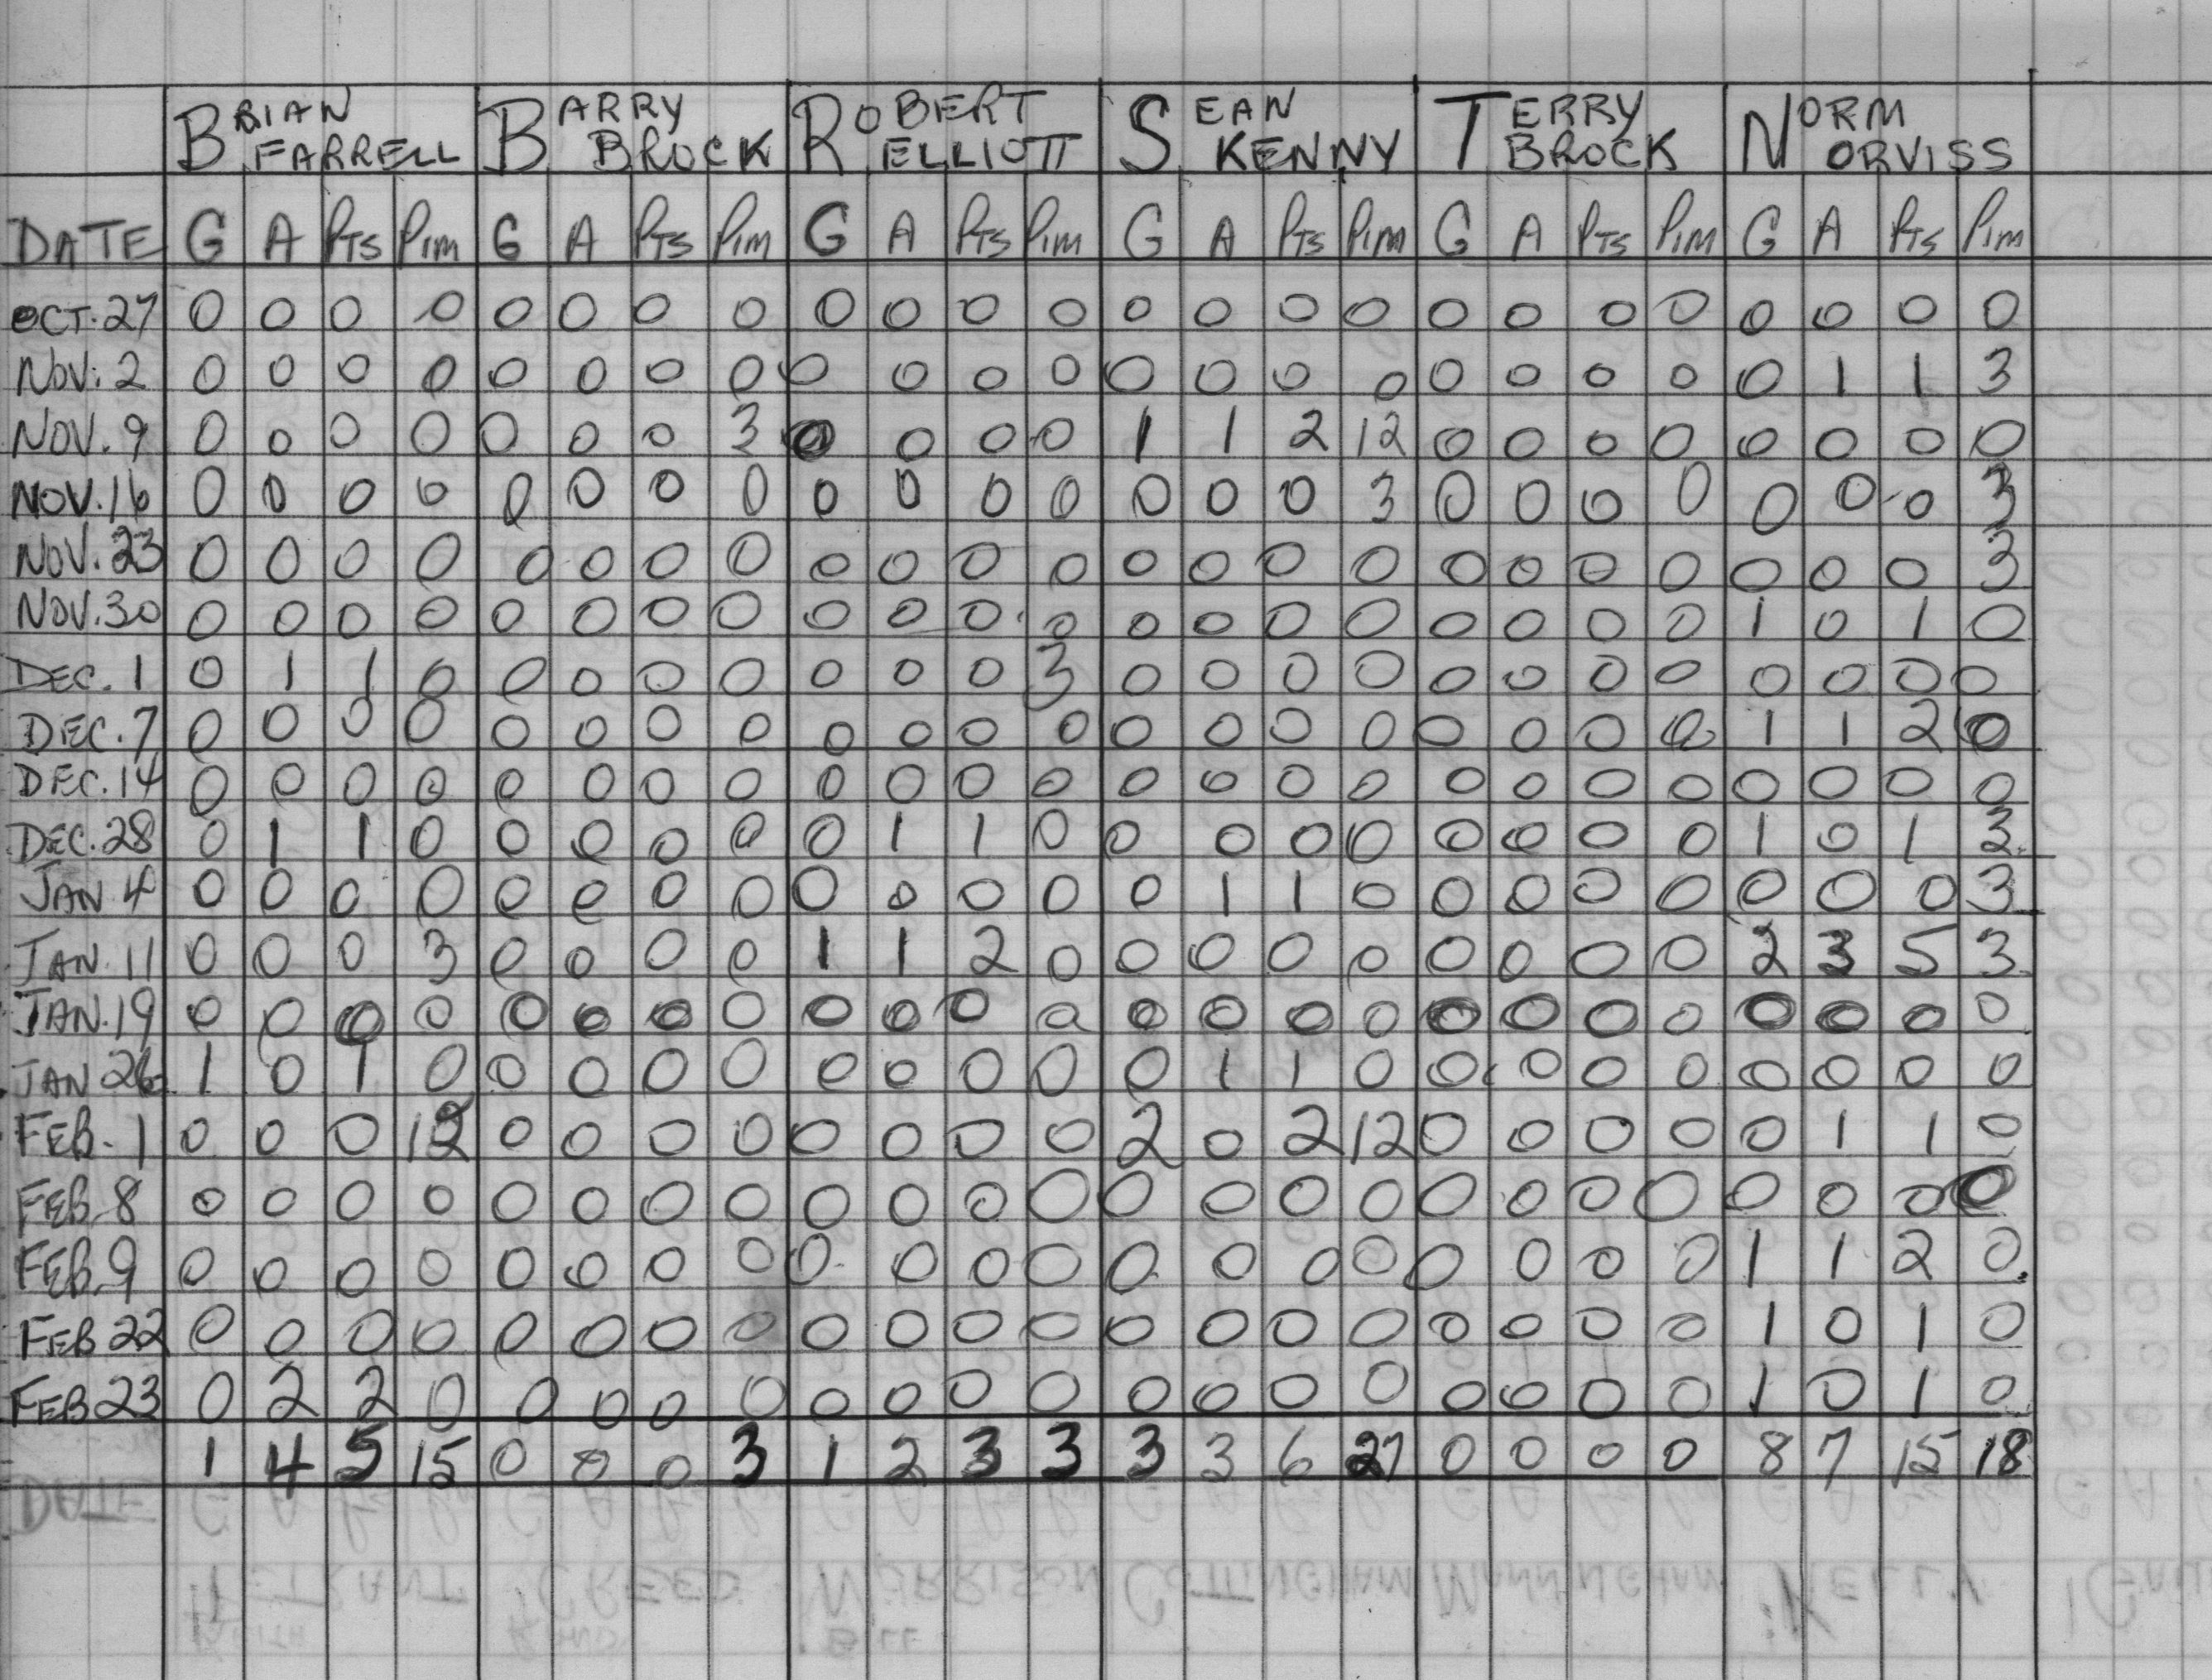 BRIAN FARRELL BARRY BROCK ROBERT ELLIOTT SEAN KENNY TERRY BROCK NORM ORVISS
DATE G A PTS PIM G A PTS PIM G A PTS PIM G A PTS PIM G A PTS PIM G A PTS PIM
OCT. 27 0 0 0 0 0 0 0 0 0 0 0 0 0 0 0 0 0 0 0 0 0 0 0 0
NOV. 2 0 0 0 0 0 0 0 0 0 0 0 0 0 0 0 0 0 0 0 0 0 1 1 3
NOV. 9 0 0 0 0 0 0 0 3 0 0 0 0 1 1 2 12 0 0 0 0 0 0 0 0
NOV. 16 0 0 0 0 0 0 0 0 0 0 0 0 0 0 0 3 0 0 0 0 0 0 0 3
NOV. 23 0 0 0 0 0 0 0 0 0 0 0 0 0 0 0 0 0 0 0 0 0 0 0 3
NOV. 30 0 0 0 0 0 0 0 0 0 0 0 0 0 0 0 0 0 0 0 0 1 0 1 0
DEC. 1 0 1 1 0 0 0 0 0 0 0 0 3 0 0 0 0 0 0 0 0 0 0 0 0
DEC. 7 0 0 0 0 0 0 0 0 0 0 0 0 0 0 0 0 0 0 0 0 1 1 2 0
DEC. 14 0 0 0 0 0 0 0 0 0 0 0 0 0 0 0 0 0 0 0 0 0 0 0 0
DEC. 28 0 1 1 0 0 0 0 0 0 1 1 0 0 0 0 0 0 0 0 0 1 0 1 3
JAN 4 0 0 0 0 0 0 0 0 0 0 0 0 0 1 1 0 0 0 0 0 0 0 0 3
JAN. 11 0 0 0 3 0 0 0 0 1 1 2 0 0 0 0 0 0 0 0 0 2 3 5 3
JAN. 19 0 0 0 0 0 0 0 0 0 0 0 0 0 0 0 0 0 0 0 0 0 0 0 0
JAN 26 1 0 1 0 0 0 0 0 0 0 0 0 0 1 1 0 0 0 0 0 0 0 0 0
FEB. 1 0 0 0 12 0 0 0 0 0 0 0 0 2 0 2 12 0 0 0 0 0 1 1 0
FEB. 8 0 0 0 0 0 0 0 0 0 0 0 0 0 0 0 0 0 0 0 0 0 0 0 0
FEB. 9 0 0 0 0 0 0 0 0 0 0 0 0 0 0 0 0 0 0 0 0 1 1 2 0
FEB 22 0 0 0 0 0 0 0 0 0 0 0 0 0 0 0 0 0 0 0 0 1 0 1 0
FEB 23 0 2 2 0 0 0 0 0 0 0 0 0 0 0 0 0 0 0 0 0 1 0 1 0
1 4 5 15 0 0 0 3 1 2 3 3 3 3 6 27 0 0 0 0 8 7 15 18